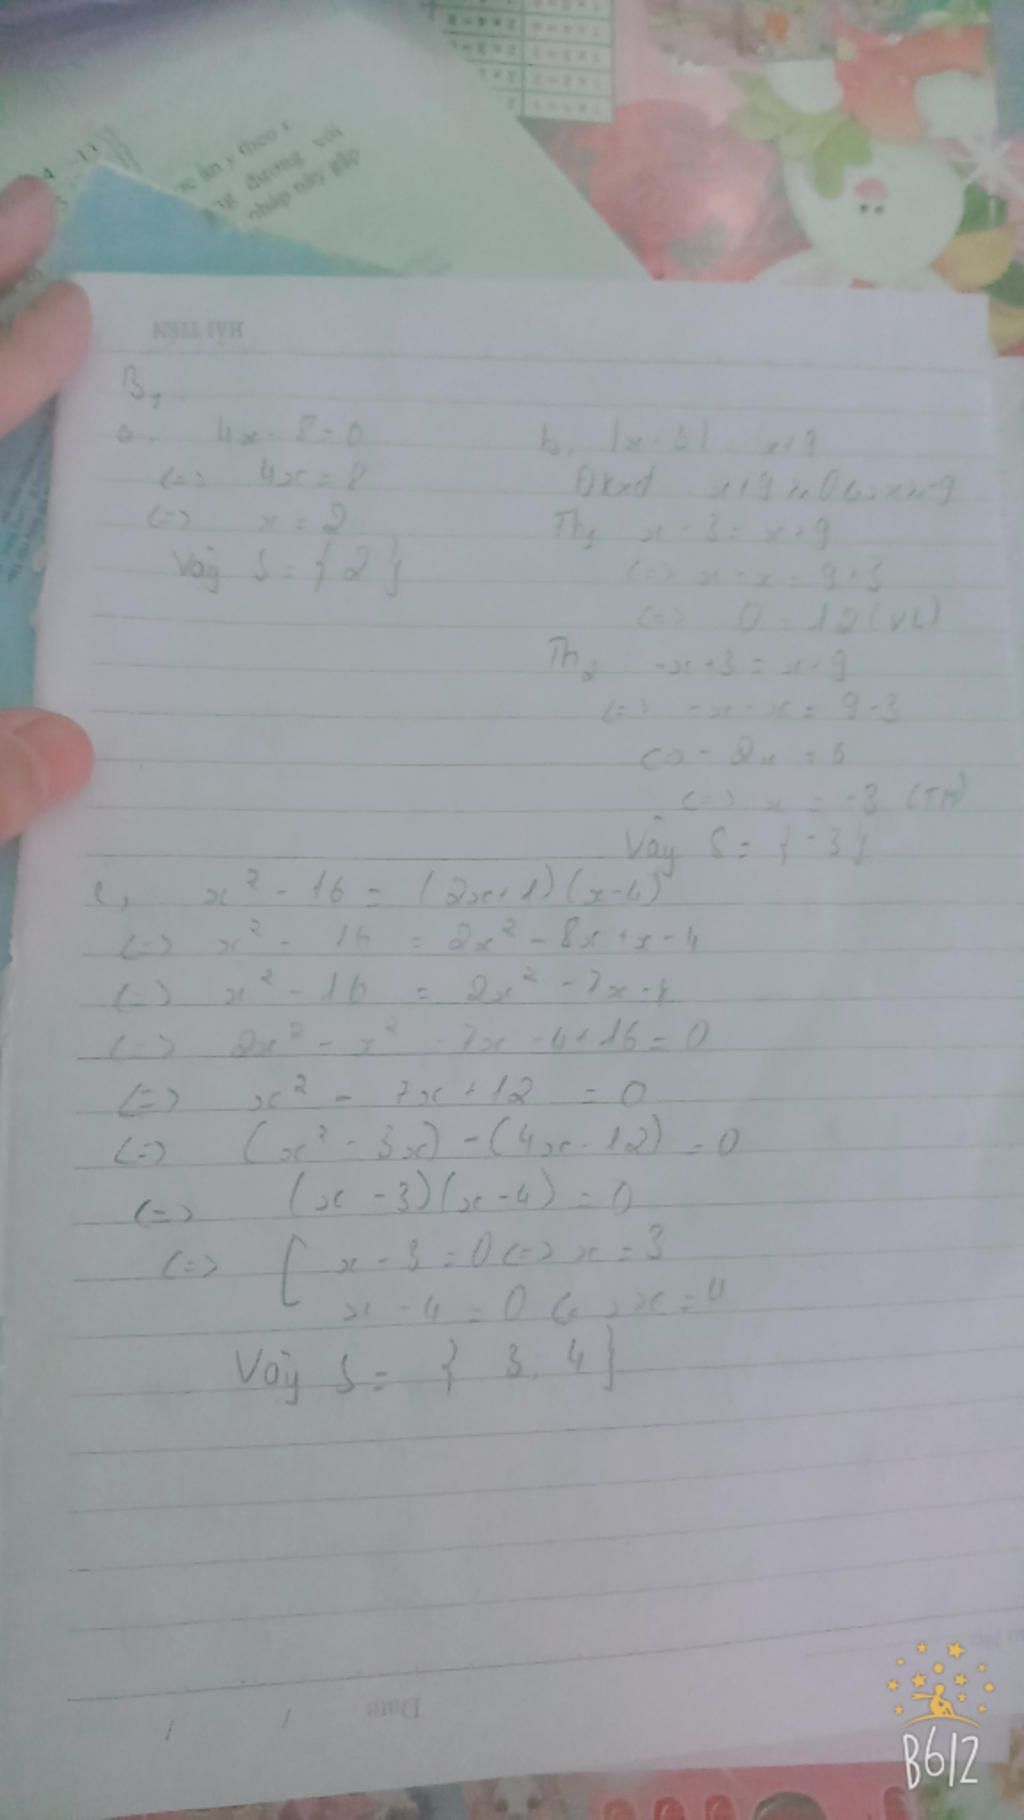 HẢI TIẾN
B1
a. 4x - 8 = 0
(=) 4x = 8
(=) x = 2
Vậy S = { 2 }
b, |x - 3| = x + 9
Đkxđ x + 9 ≥ 0 (=) x ≥ -9
Th1 x - 3 = x + 9
(=) x - x = 9 + 3
(=) 0 = 12 (VL)
Th2 -x + 3 = x + 9
(=) -x - x = 9 - 3
(=) - 2x = 6
(=) x = -3 (TM)
Vậy S = { -3 }
c, x² - 16 = (2x + 1)(x - 4)
(=) x² - 16 = 2x² - 8x + x - 4
(=) x² - 16 = 2x² - 7x - 4
(=) 2x² - x² - 7x - 4 + 16 = 0
(=) x² - 7x + 12 = 0
(=) (x² - 3x) - (4x - 12) = 0
(=) (x - 3)(x - 4) = 0
(=) [ x - 3 = 0 (=) x = 3
x - 4 = 0 (=) x = 4
Vậy S = { 3; 4 }
Date
B612